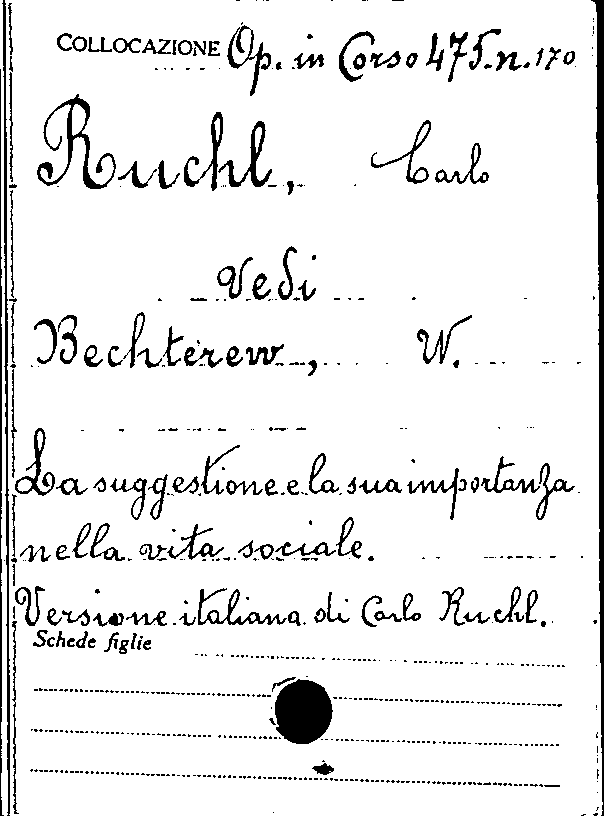 COLLOCAZIONE Op. in Corso 475.n.170
Ruchl, Carlo
Vedi
Bechterew, W.
La suggestione e la sua importanza
nella vita sociale.
Versione italiana di Carlo Ruchl.
Schede figlie